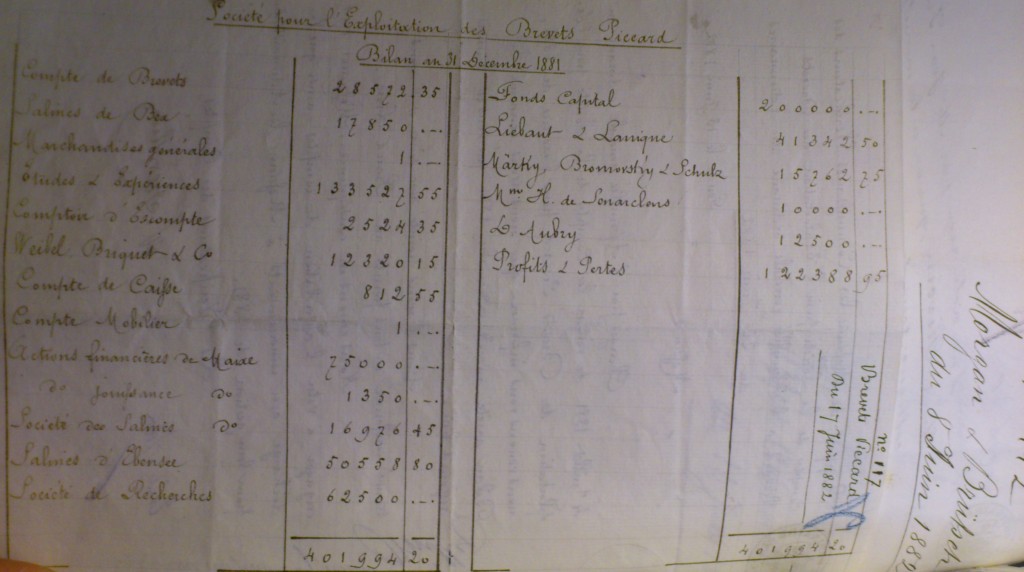 Société pour l'Exploitation des Brevets Piccard
Bilan au 31 Décembre 1881
Compte de Brevets 28572.35
Salines de Bex 17850.--
Marchandises générales 1.--
Études & Expériences 133527 55
Comptoir d'Escompte 2524 35
Weibel Briquet & Co 12320 15
Compte de Caisse 812 55
Compte Mobilier 1.--
Actions financières de Maixe 75000.--
do jouissance do 1350.--
Société des Salines do 16976 45
Salines d'Ebensee 50558 80
Société de Recherches 62500.--
401994 20
Fonds Capital 200000.--
Liebaut & Lanigne 41342 50
Märky, Bromovsky & Schulz 15762 75
Mme H. de Senarclens 10000.--
L. Aubry 12500.--
Profits & Pertes 122388 95
401994 20
n° 117
Brevets Piccard
Du 17 juin 1882
Morgan & Brütsch
du 8 Juin 1882